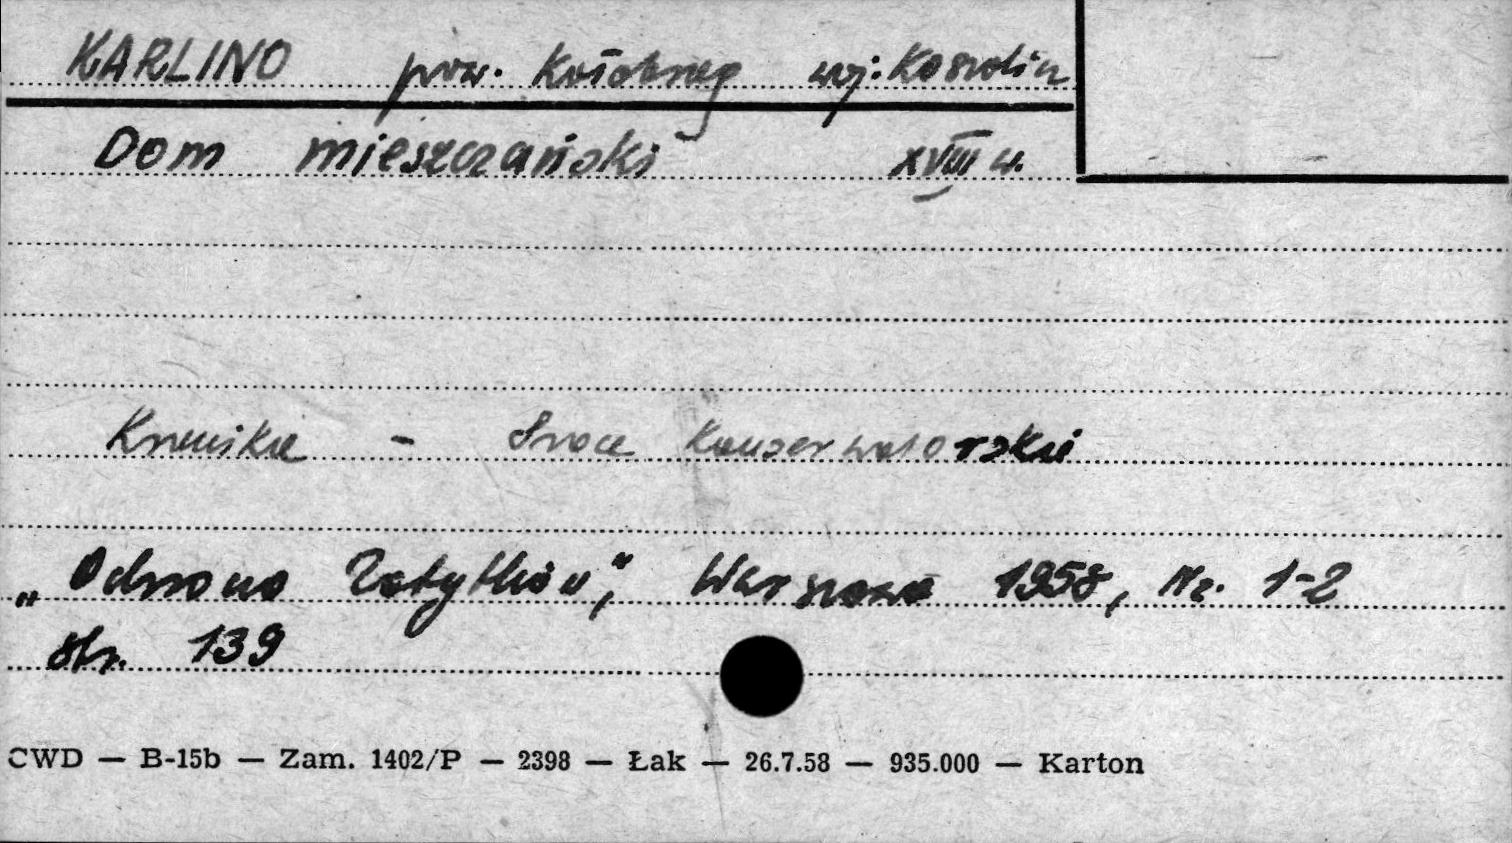 KARLINO pow. Kołobrzeg woj. Koszalin
Dom mieszczański XVIII w.
Kronika - Prace konserwatorskie
„Ochrona Zabytków", Warszawa 1958, Nr. 1-2
str. 139
CWD — B-15b — Zam. 1402/P — 2398 — Łak — 26.7.58 — 935.000 — Karton